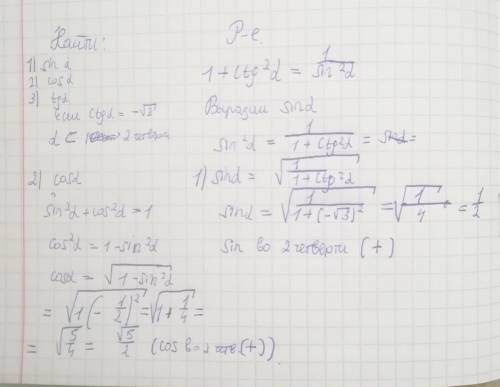 Найти:
1) sin α
2) cos α
3) tg α
если ctg α = -√3
α ⊂ 2 четверти
Р-е.
1 + ctg²α = 1/sin²α
Выразим sin α
sin²α = 1/(1 + ctg²α) = sin α =
1) sin α = √(1/(1 + ctg²α))
sin α = √(1/(1 + (-√3)²)) = √(1/4) = 1/2
sin во 2 четверти (+)
2) cos α
sin²α + cos²α = 1
cos²α = 1 - sin²α
cos α = √(1 - sin²α)
= √(1(-1/2)²) = √(1 + 1/4) =
= √(5/4) = √5/2 (cos во 2 четв. (+))